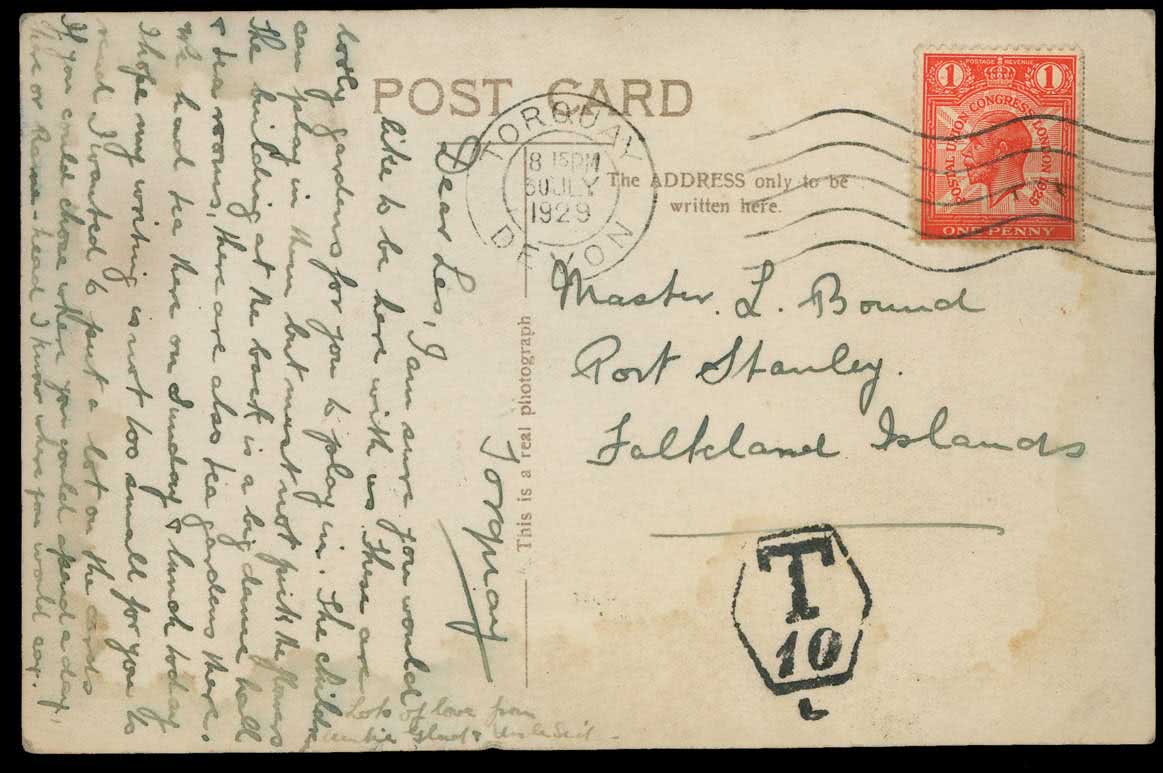 POST CARD
The ADDRESS only to be
written here.
TORQUAY
8 15PM
30 JLY
1929
DEVON
POSTAGE REVENUE
1 1
POSTAL UNION CONGRESS LONDON 1929
ONE PENNY
Master. L. Bound
Port Stanley.
Falkland Islands
T
10
L
This is a real photograph
Torquay
Dear Les, I am sure you would
like to be here with us. There are
lovely gardens for you to play in. The children
can play in them but must not pick the flowers
The building at the back is a big dance hall
& tea rooms, there are also tea gardens there.
We had tea there on Sunday & lunch today
I hope my writing is not too small for you to
read I wanted to put a lot on the cards
If you could chose where you could spend a day,
here or head I know where you would say.
Lots of love from
Auntie Glad &